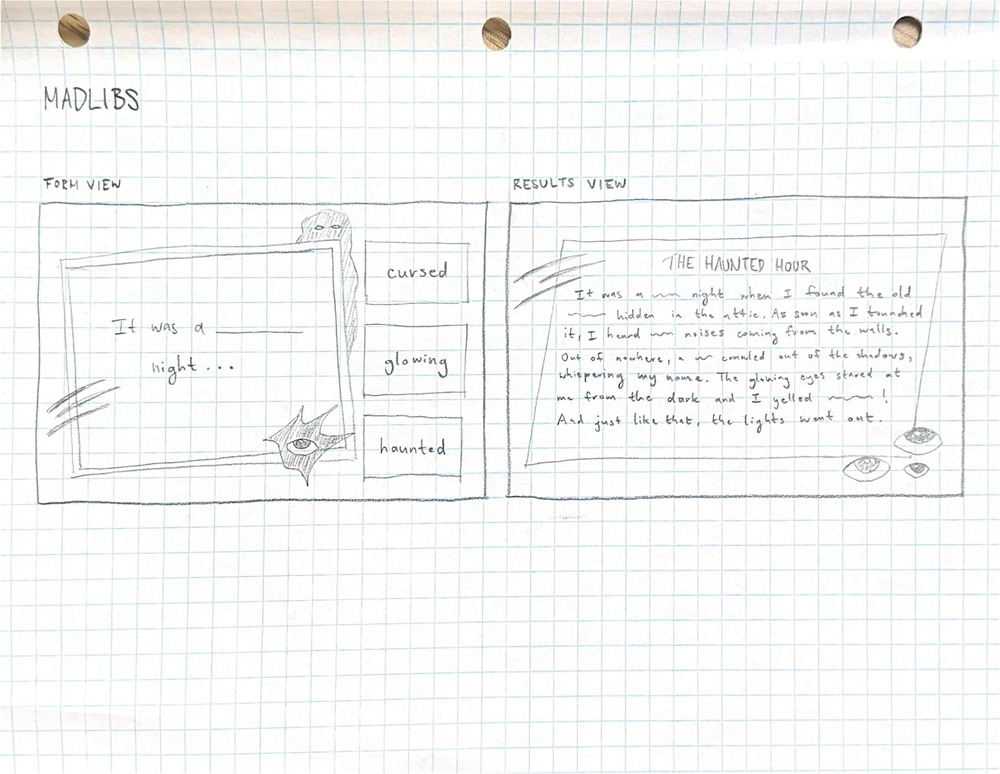 MADLIBS
FORM VIEW
It was a
night ...
cursed
glowing
haunted
RESULTS VIEW
THE HAUNTED HOUR
It was a night when I found the old
hidden in the attic. As soon as I tounched
it, I heard noises coming from the walls.
Out of nowhere, a crawled out of the shadows,
whispering my name. The glowing eyes stared at
me from the dark and I yelled !
And just like that, the lights went out.